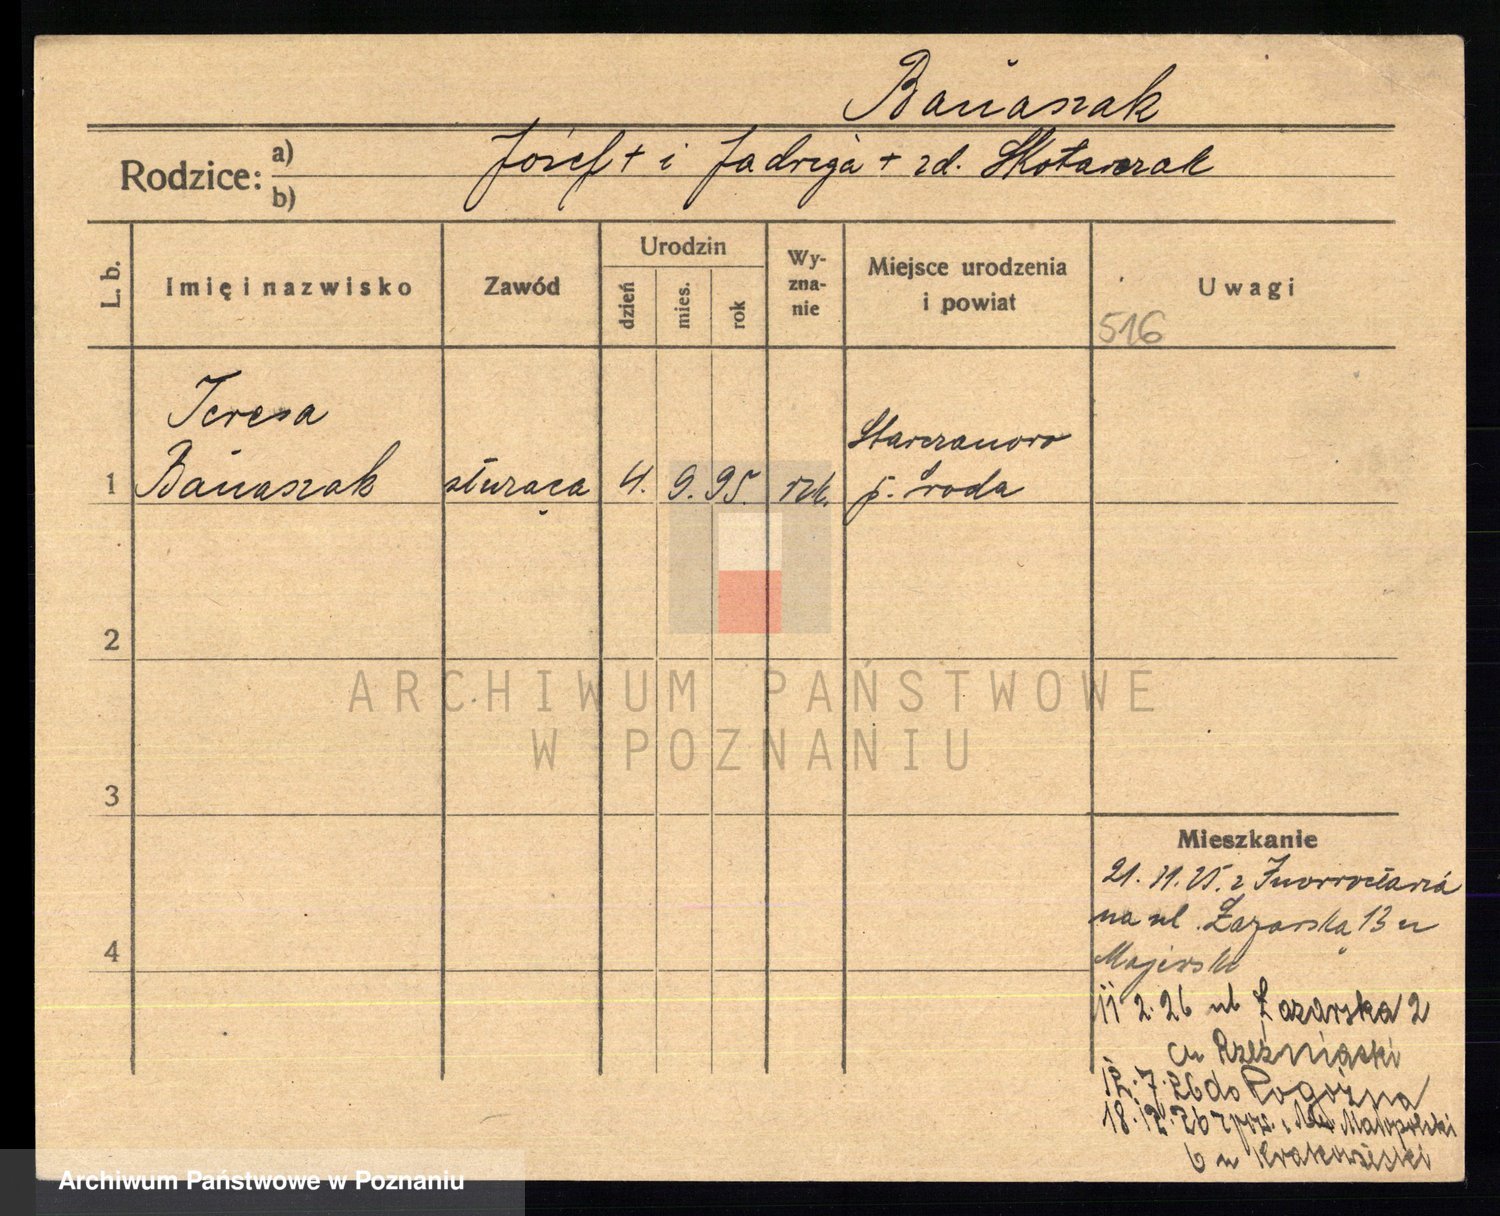 Banaszak
Rodzice: a) b)
Józef + i Jadwiga + zd. Skotarczak
L. b.
Imię i nazwisko
Zawód
Urodzin
dzień
mies.
rok
Wy-
zna-
nie
Miejsce urodzenia
i powiat
Uwagi
516
Teresa
1 Banaszak służąca 4. 9. 95. rzk. Starczanowo
p. Środa
2
ARCHIWUM PAŃSTWOWE
W POZNANIU
3
Mieszkanie
21. 11. 25. z Inowrocławia
na ul. Łazarską 13 u
4
Majerski
11 2. 26 ul Łazarska 2
12. 7. 26 do Rogoźna
18. 12. 26 z pow. Małopolski
6 u
Archiwum Państwowe w Poznaniu